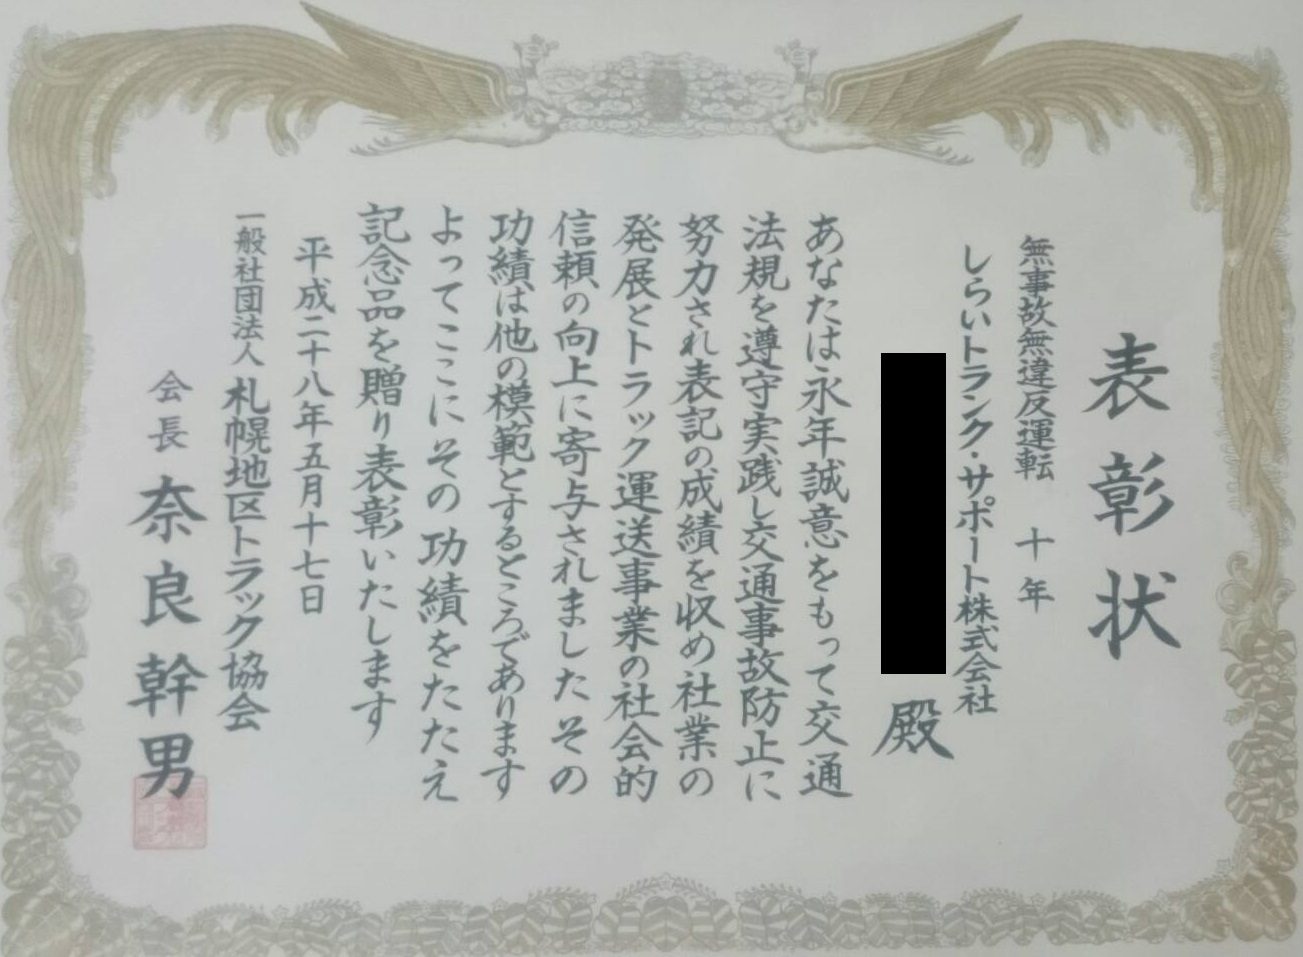 表彰状
無事故無違反運転 十年
しらいトランク・サポート株式会社
殿
あなたは永年誠意をもって交通
法規を遵守実践し交通事故防止に
努力され表記の成績を収め社業の
発展とトラック運送事業の社会的
信頼の向上に寄与されましたその
功績は他の模範とするところであります
よってここにその功績をたたえ
記念品を贈り表彰いたします
平成二十八年五月十七日
一般社団法人 札幌地区トラック協会
会長 奈良幹男